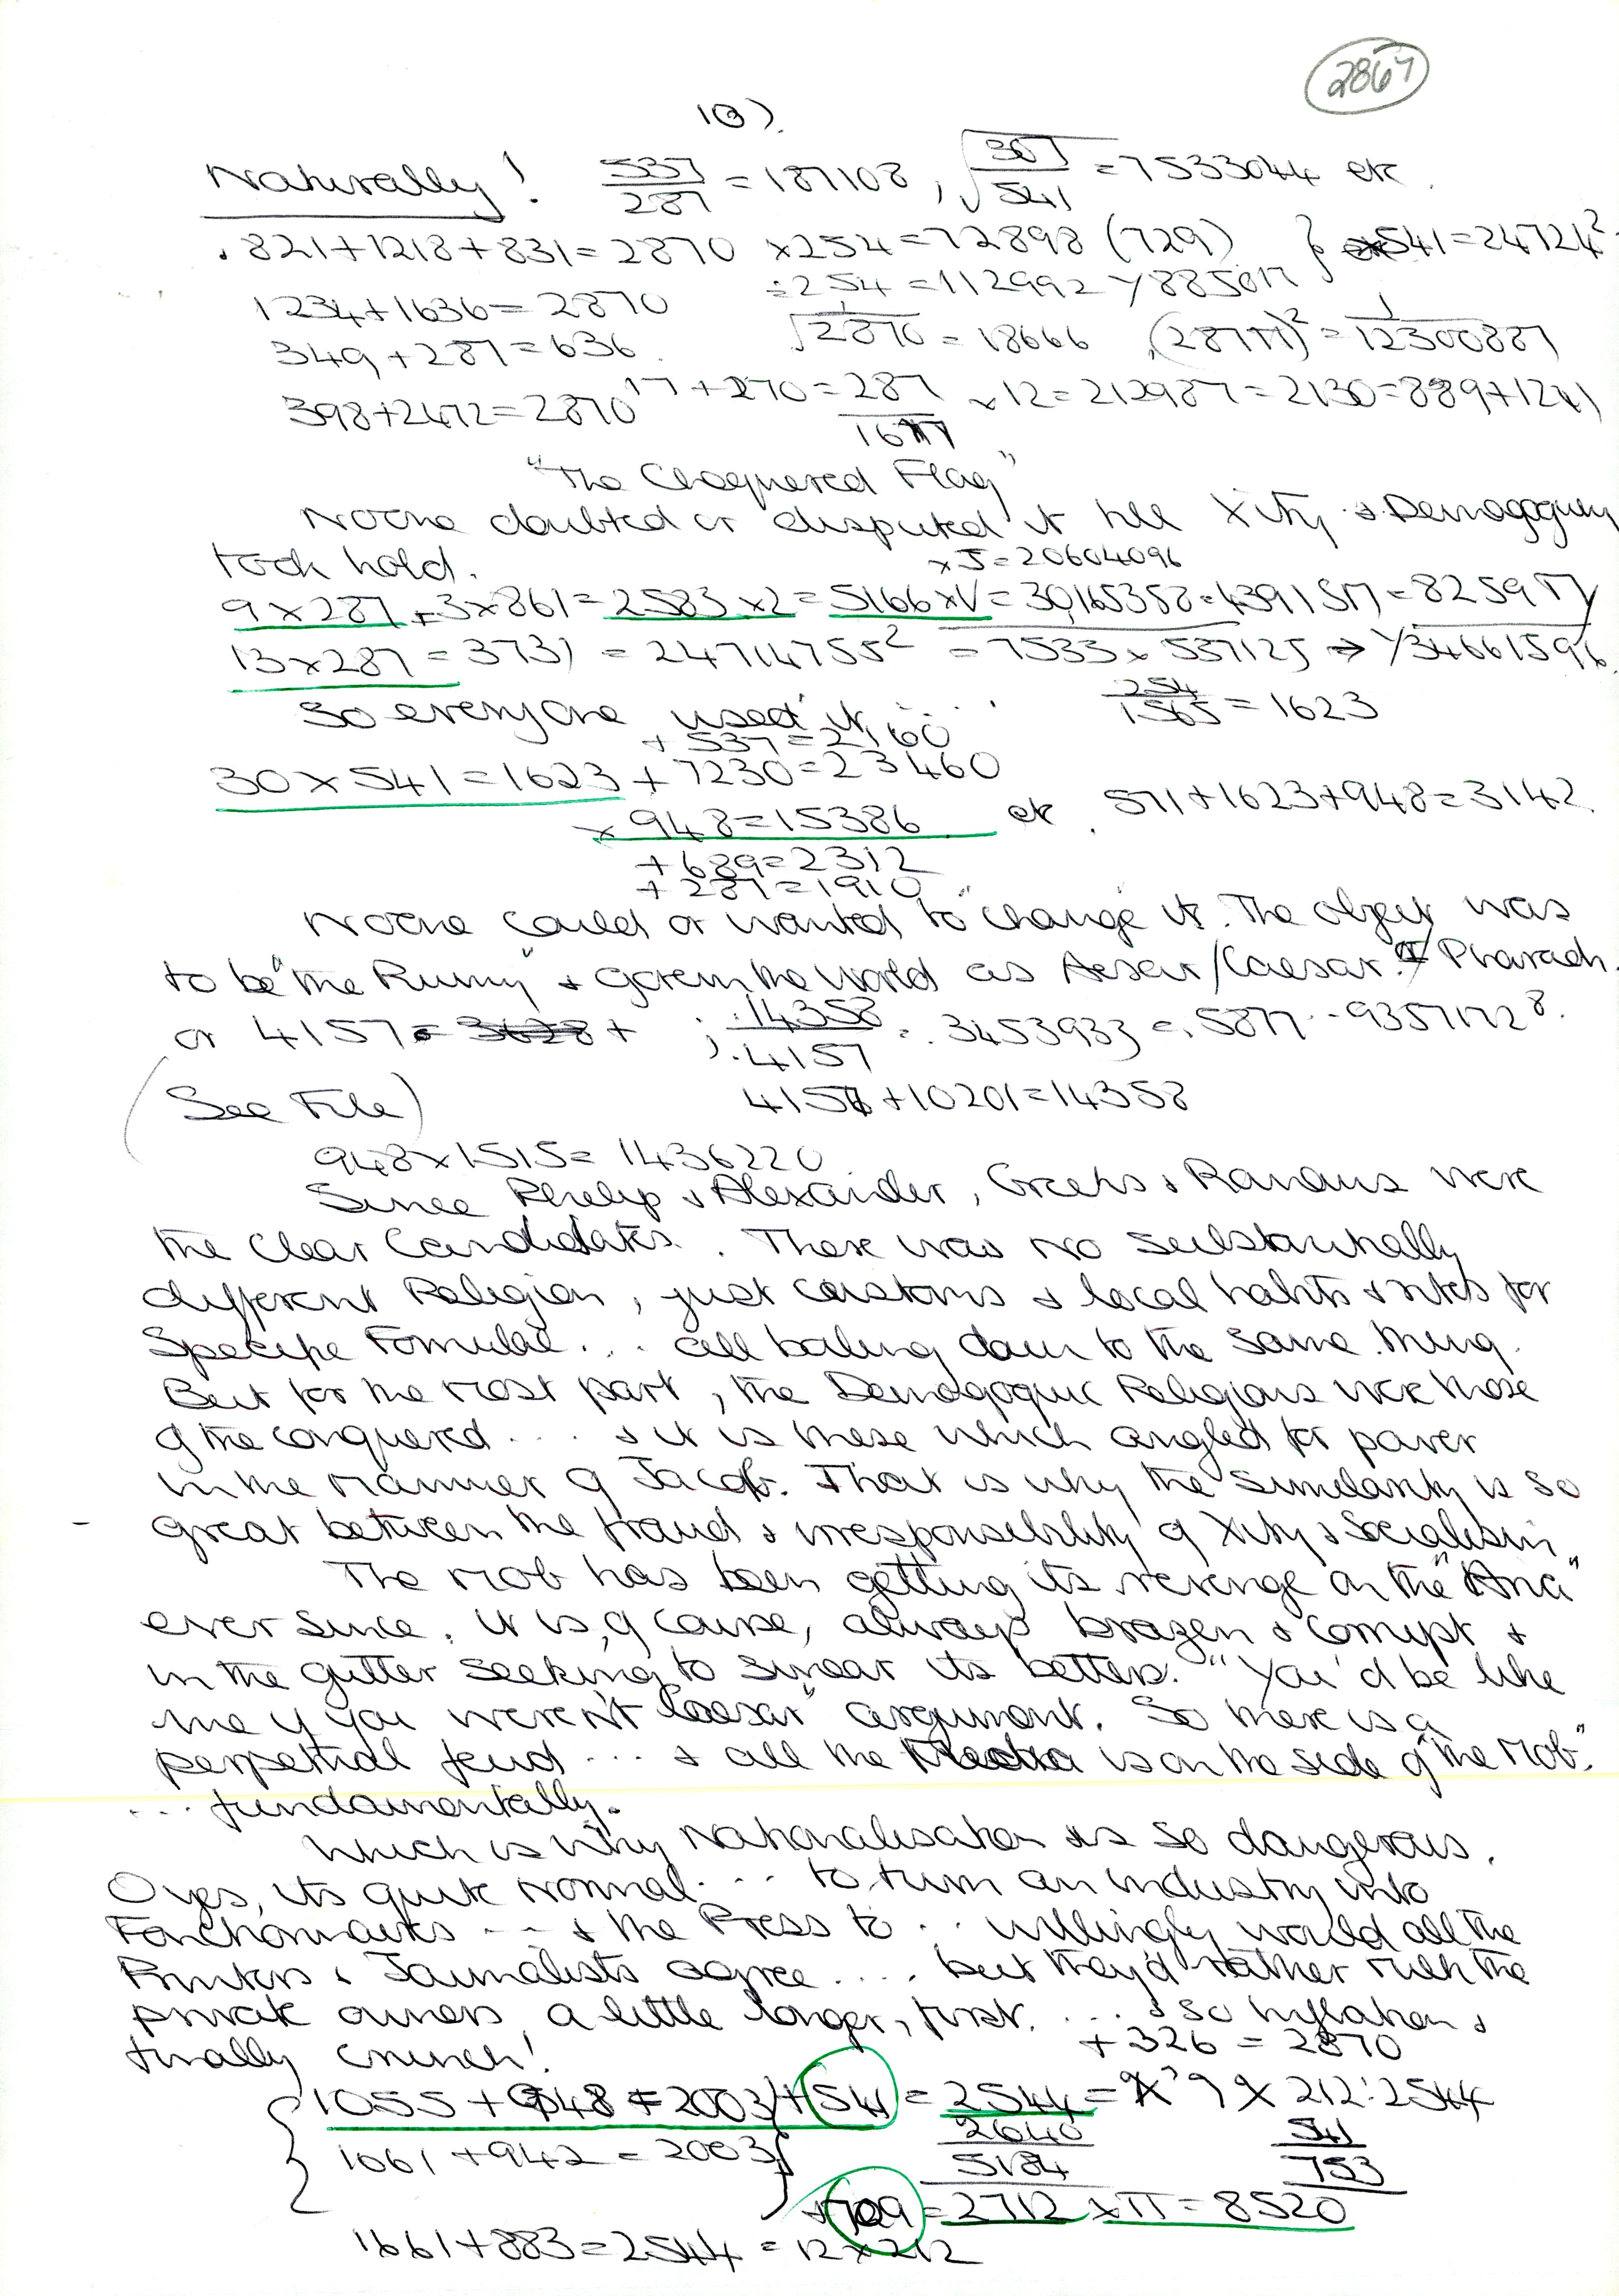 2867
10).
Naturally! 537/287 = 187108, √307/541 = 7533044 etc.
.821+1218+831=2870 ×254=72898 (729) } 541=24724²
1234+1636=2870 ÷254=112992 γ88501π
349+287=636. √2870=18666, (287π)²=1/12300887
398+2472=2870 17+270=287/16π ×12=212987=2130=889+1241
"The Chequered Flag"
Noone doubted or disputed it till Xity & Demagoguery
took hold. ×5=20604096
9×287+3×861=2583×2=5166×V=30165358=439157=8259π
13×287=3731=24714755²=7533×537125→γ34661596
So everyone used it.... 254/1565=1623
+537=2160
30×541=1623+7230=23460
×948=15386 etc. 571+1623+948=3142.
+689=2312
+287=1910
Noone could or wanted to "change" it. The object was
to be "the Rumy" & govern the World as Aesar/Caesar. Pharaoh.
or 4157 + ; .14358/.4157 : 3453933 = .5877..93571728.
(See File) 4157+10201=14358
948×1515=1436220
Since Philip & Alexander, Greeks & Romans were
the clear Candidates. There was no substantially
different Religion, just customs & local habits & rites for
Specific Formulae... all boiling down to the same thing.
But for the most part, the Demagogic Religions were those
of the conquered.... & it is these which angled for power
in the manner of Jacob. That is why the similarity is so
great between the fraud & irresponsibility of Xity & Socialism.
The Mob has been getting its revenge on the "Arici"
ever since. It is, of course, always brazen & corrupt &
in the gutter seeking to smear its betters. "You'd be like
me if you weren't Caesar" argument. So there is a
perpetual feud... & all the Media is on the side of "the Mob".
... fundamentally.
Which is why Nationalisation is so dangerous.
O yes, its quite normal.... to turn an industry into
Fonctionnaires --- & the Press to... willingly would all the
Printers & Journalists agree.... but they'd rather milk the
private owners a little longer, first.... & so Inflation &
finally crunch! +326=2870
1055+948=2003+541=2544= 9×212:2544
1061+942=2003 2640 541
5184 753
+709=2712×π=8520
1661+883=2544=12×212